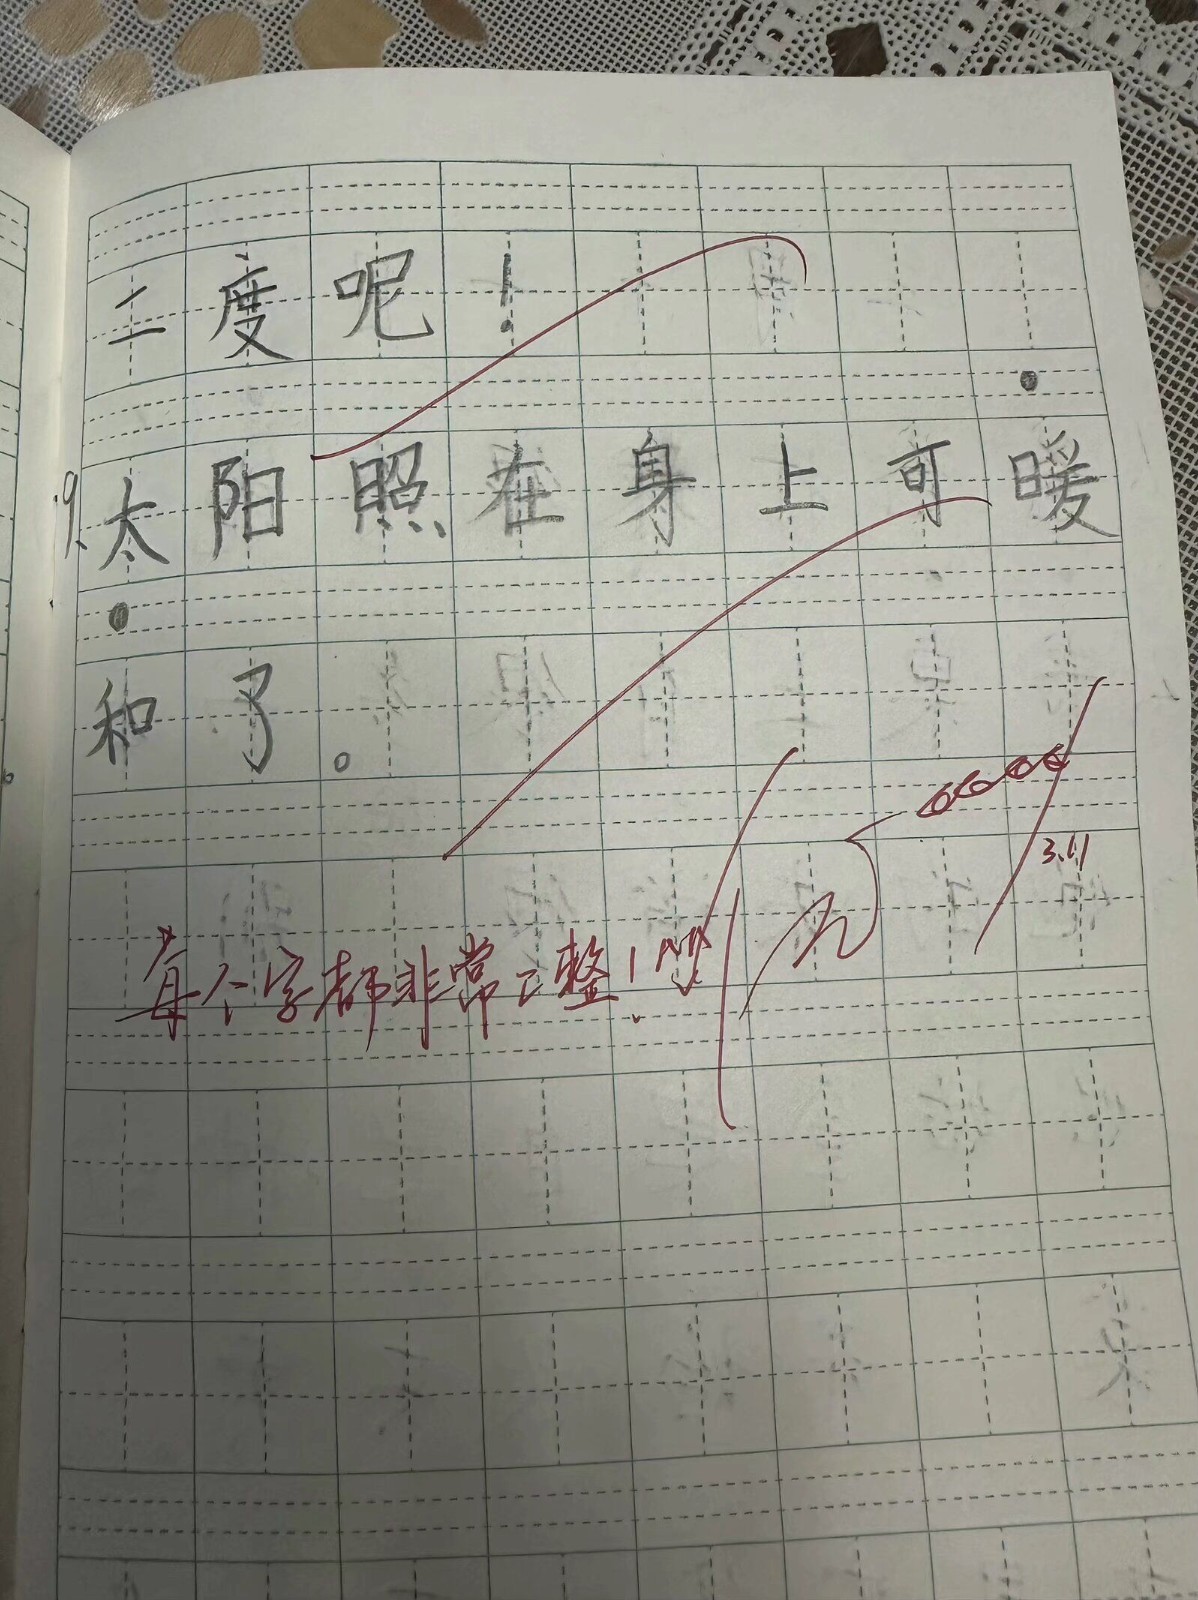 二度呢！
9.太阳照在身上可暖
和了。
3.11
每个字都非常工整！